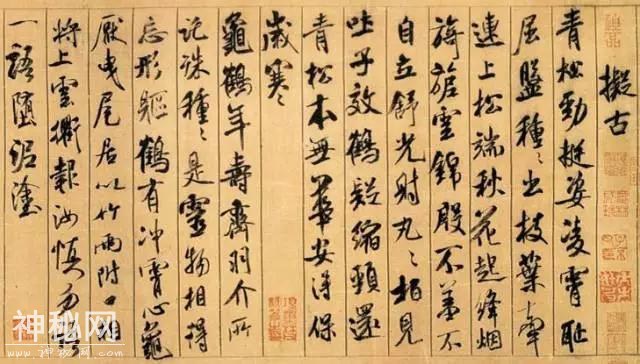 擬古
青松勁挺姿凌霄恥
屈盤種〻出枝葉牽
連上松端秋花起絳烟
旖旎雲錦殷不羞不
自立舒光射丸〻柏見
吐子效鶴疑縮頸還
青松本無華安得保
歲寒〻
龜鶴年壽齊羽介所
託殊種〻是靈物相得
忘形軀鶴有沖霄心龜
厭曳尾居以竹兩附口相
將上雲衢報汝慎勿語
一語墮泥塗
神秘网